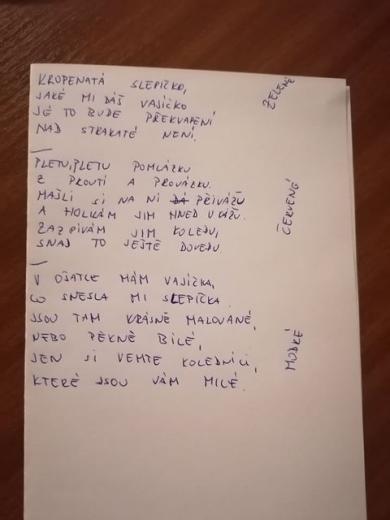 KROPENATÁ SLEPIČKO,
JAKÉ MI DÁŠ VAJÍČKO
JÉ TO BUDE PŘEKVAPENÍ
NAD STRAKATÉ NENÍ.
ZELENÉ
PLETU, PLETU POMLÁZKU
Z PROUTÍ A PROVÁZKU.
MAŠLI SI NA NI PŘIVÁŽU
A HOLKÁM JIM HNED UKÁŽU.
ZAZPÍVÁM JIM KOLEDU,
SNAD TO JEŠTĚ DOVEDU.
ČERVENÉ
V OŠATCE MÁM VAJÍČKA,
CO SNESLA MI SLEPIČKA.
JSOU TAM KRÁSNĚ MALOVANÉ,
NEBO PĚKNĚ BÍLÉ,
JEN SI VEMTE KOLEDNÍCI,
KTERÉ JSOU VÁM MILÉ.
MODRÉ